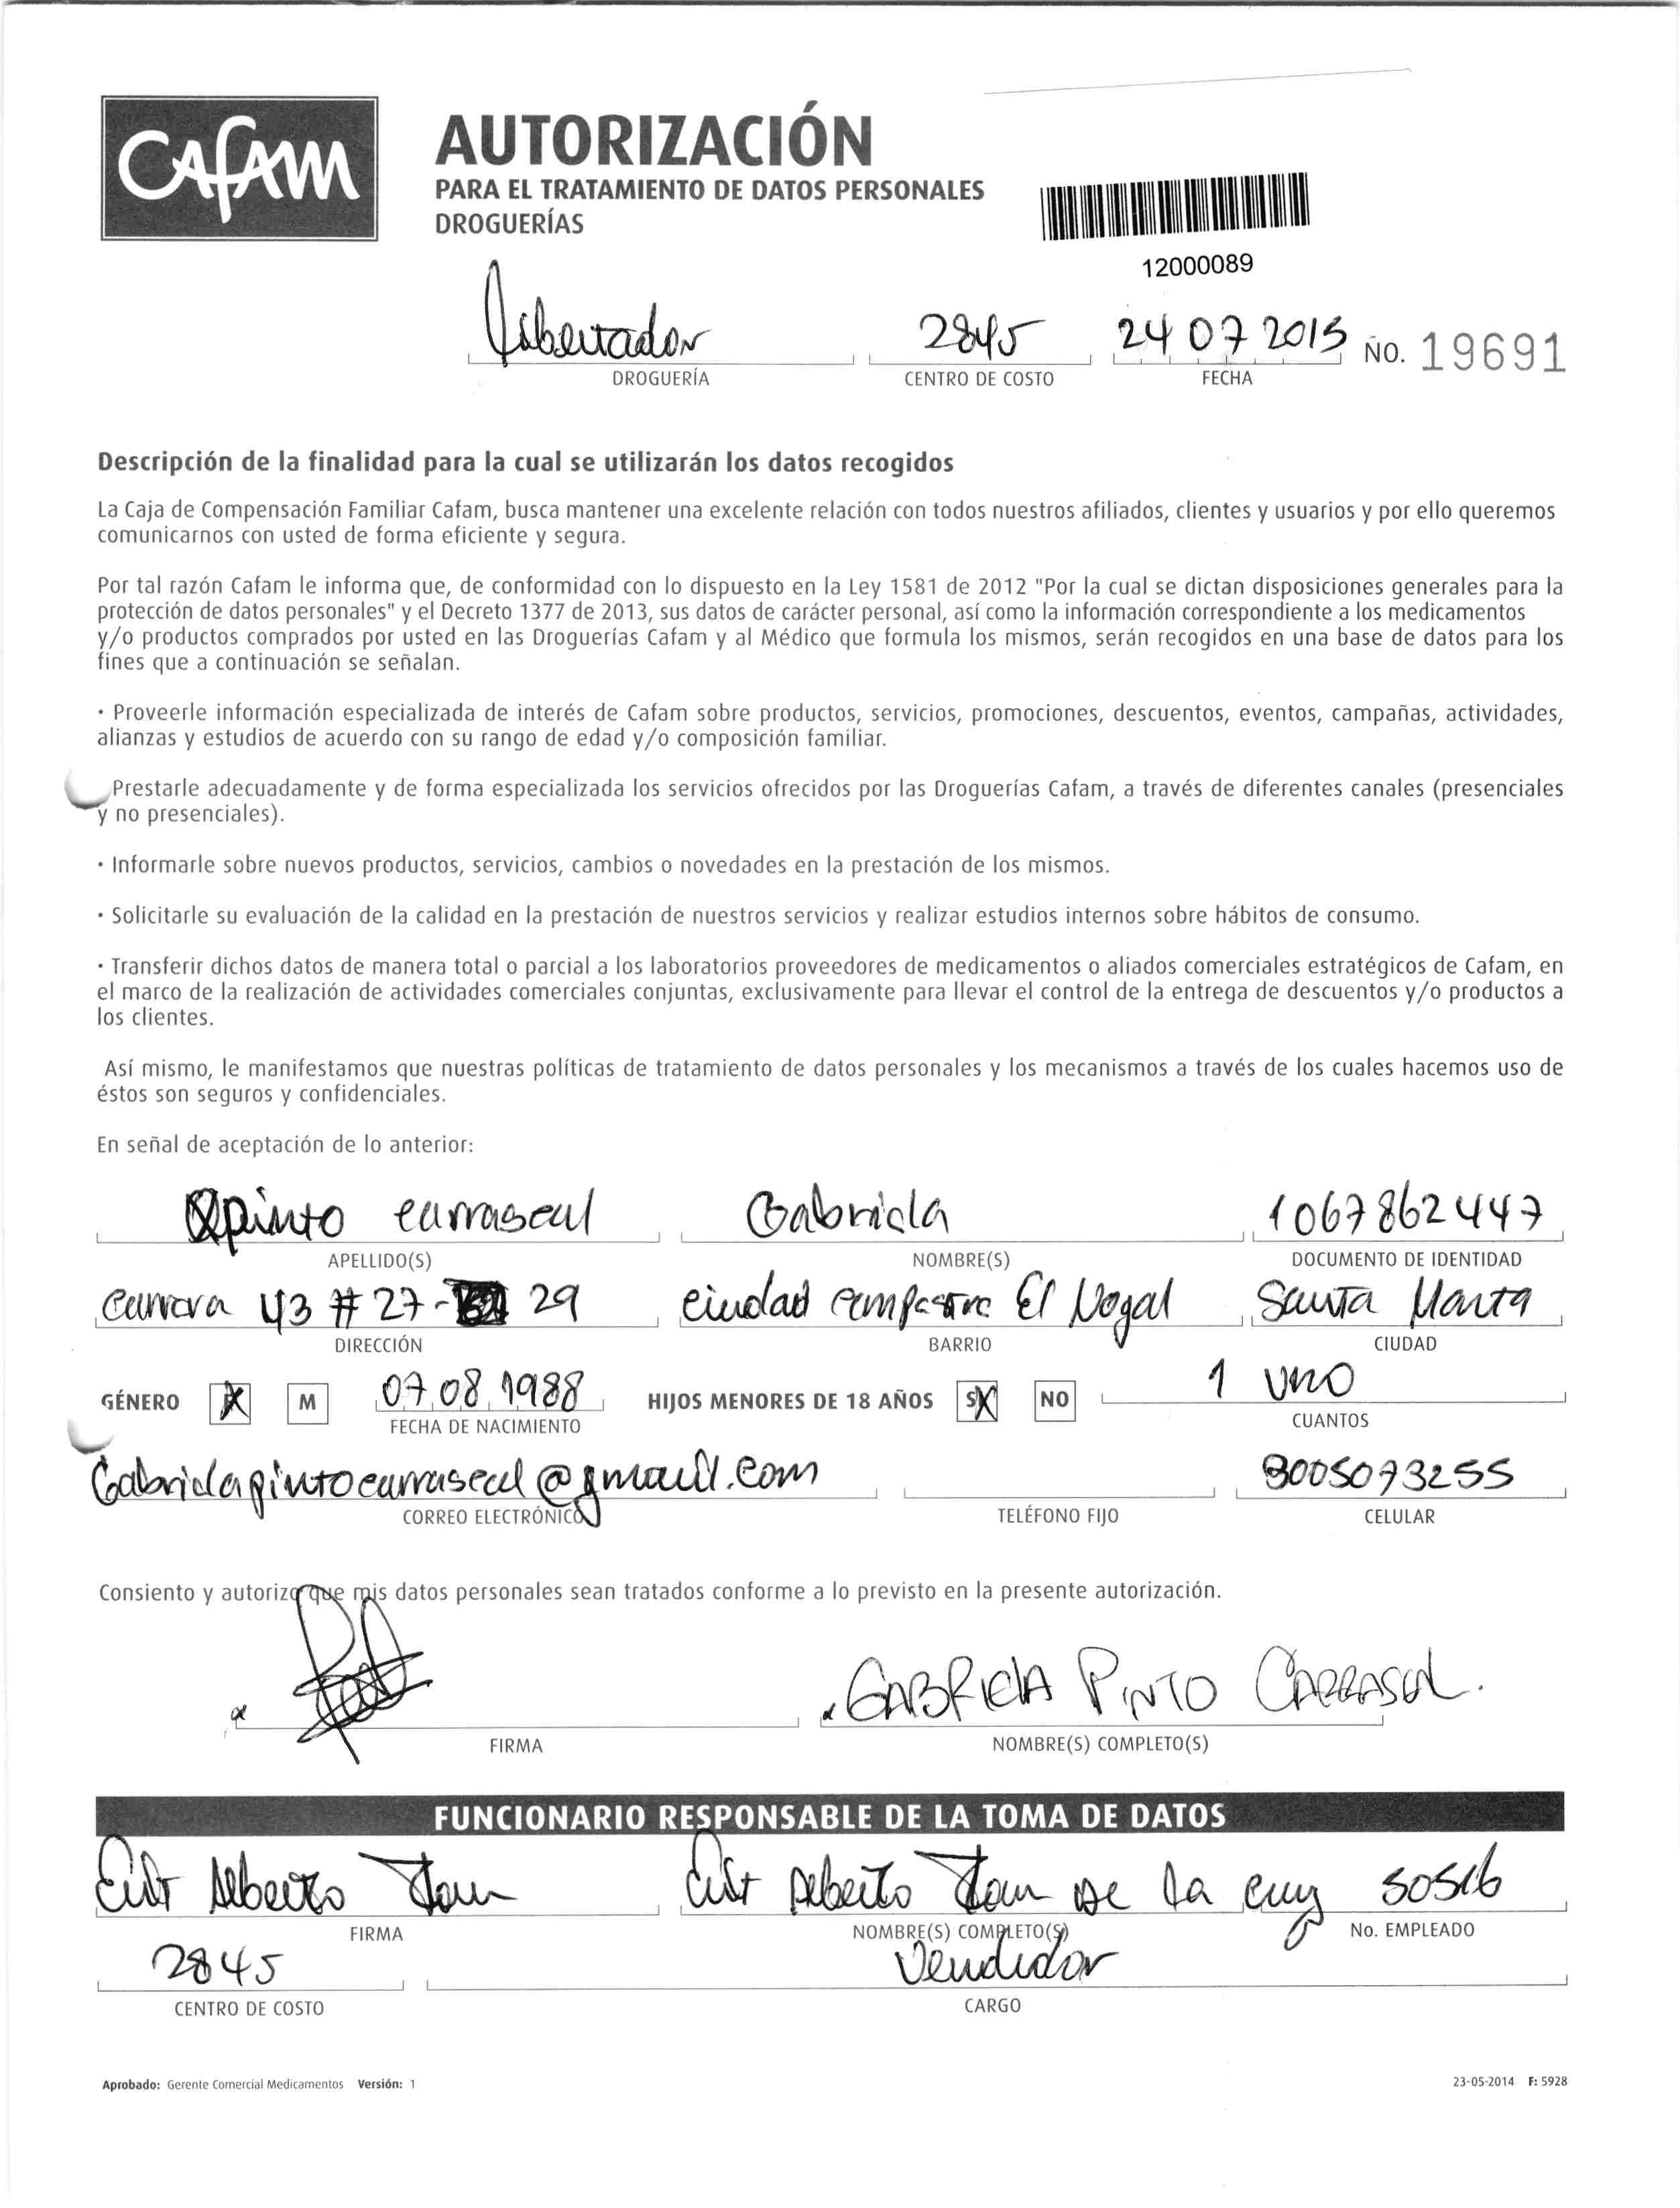 Cafam
AUTORIZACIÓN
PARA EL TRATAMIENTO DE DATOS PERSONALES
DROGUERÍAS
12000089
Libertador 2845 24 07 2015 NO. 19691
DROGUERÍA CENTRO DE COSTO FECHA
Descripción de la finalidad para la cual se utilizarán los datos recogidos
La Caja de Compensación Familiar Cafam, busca mantener una excelente relación con todos nuestros afiliados, clientes y usuarios y por ello queremos
comunicarnos con usted de forma eficiente y segura.
Por tal razón Cafam le informa que, de conformidad con lo dispuesto en la Ley 1581 de 2012 "Por la cual se dictan disposiciones generales para la
protección de datos personales" y el Decreto 1377 de 2013, sus datos de carácter personal, así como la información correspondiente a los medicamentos
y/o productos comprados por usted en las Droguerías Cafam y al Médico que formula los mismos, serán recogidos en una base de datos para los
fines que a continuación se señalan.
· Proveerle información especializada de interés de Cafam sobre productos, servicios, promociones, descuentos, eventos, campañas, actividades,
alianzas y estudios de acuerdo con su rango de edad y/o composición familiar.
Prestarle adecuadamente y de forma especializada los servicios ofrecidos por las Droguerías Cafam, a través de diferentes canales (presenciales
y no presenciales).
· Informarle sobre nuevos productos, servicios, cambios o novedades en la prestación de los mismos.
· Solicitarle su evaluación de la calidad en la prestación de nuestros servicios y realizar estudios internos sobre hábitos de consumo.
· Transferir dichos datos de manera total o parcial a los laboratorios proveedores de medicamentos o aliados comerciales estratégicos de Cafam, en
el marco de la realización de actividades comerciales conjuntas, exclusivamente para llevar el control de la entrega de descuentos y/o productos a
los clientes.
Así mismo, le manifestamos que nuestras políticas de tratamiento de datos personales y los mecanismos a través de los cuales hacemos uso de
éstos son seguros y confidenciales.
En señal de aceptación de lo anterior:
pinto carrascal Gabriela 1067862447
APELLIDO(S) NOMBRE(S) DOCUMENTO DE IDENTIDAD
Carrera 43 # 27- 29 ciudad campestre El Nogal Santa Marta
DIRECCIÓN BARRIO CIUDAD
GÉNERO F X M 07 08 1988 HIJOS MENORES DE 18 AÑOS SI X NO 1 uno
FECHA DE NACIMIENTO CUANTOS
Gabrielapintocarrascal@gmail.com 3005073255
CORREO ELECTRÓNICO TELÉFONO FIJO CELULAR
Consiento y autorizo que mis datos personales sean tratados conforme a lo previsto en la presente autorización.
x x GABRIELA PINTO CARRASCAL.
FIRMA NOMBRE(S) COMPLETO(S)
FUNCIONARIO RESPONSABLE DE LA TOMA DE DATOS
Alberto Alberto De la Cruz
FIRMA NOMBRE(S) COMPLETO(S) No. EMPLEADO
2845 Vendedor
CENTRO DE COSTO CARGO
Aprobado: Gerente Comercial Medicamentos Versión: 1 23-05-2014 F: 5928